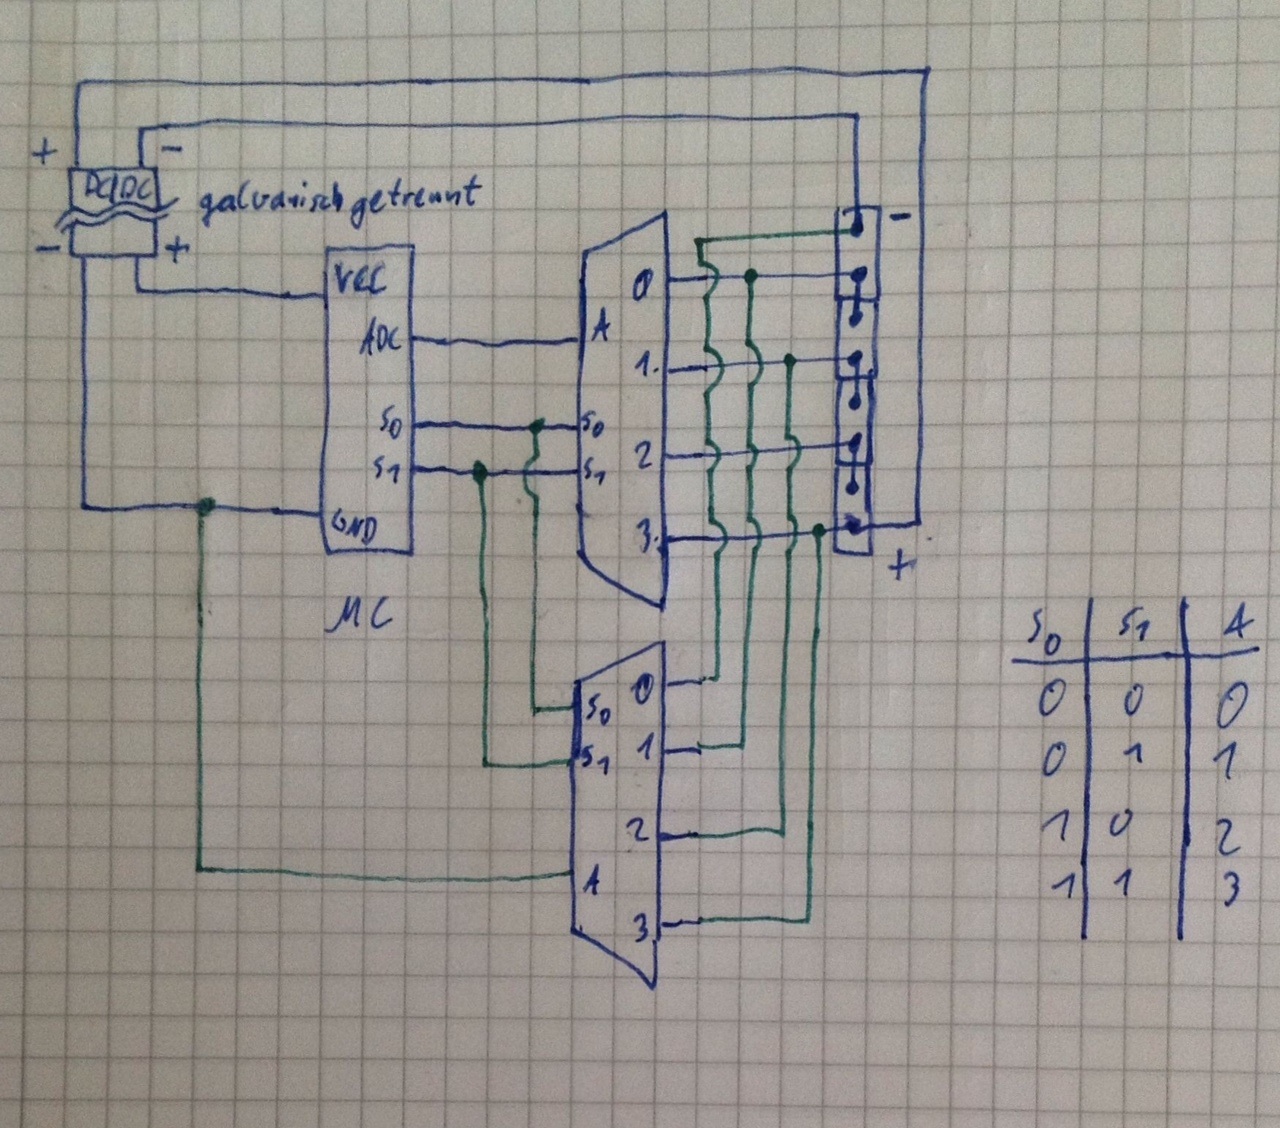 + -
DC/DC
galvanisch getrennt
- +
-
VCC
ADC
S0
S1
GND
µC
0
A
1.
S0
2
S1
3.
+
0
S0
1
S1
2
A
3
S0 S1 A
0 0 0
0 1 1
1 0 2
1 1 3